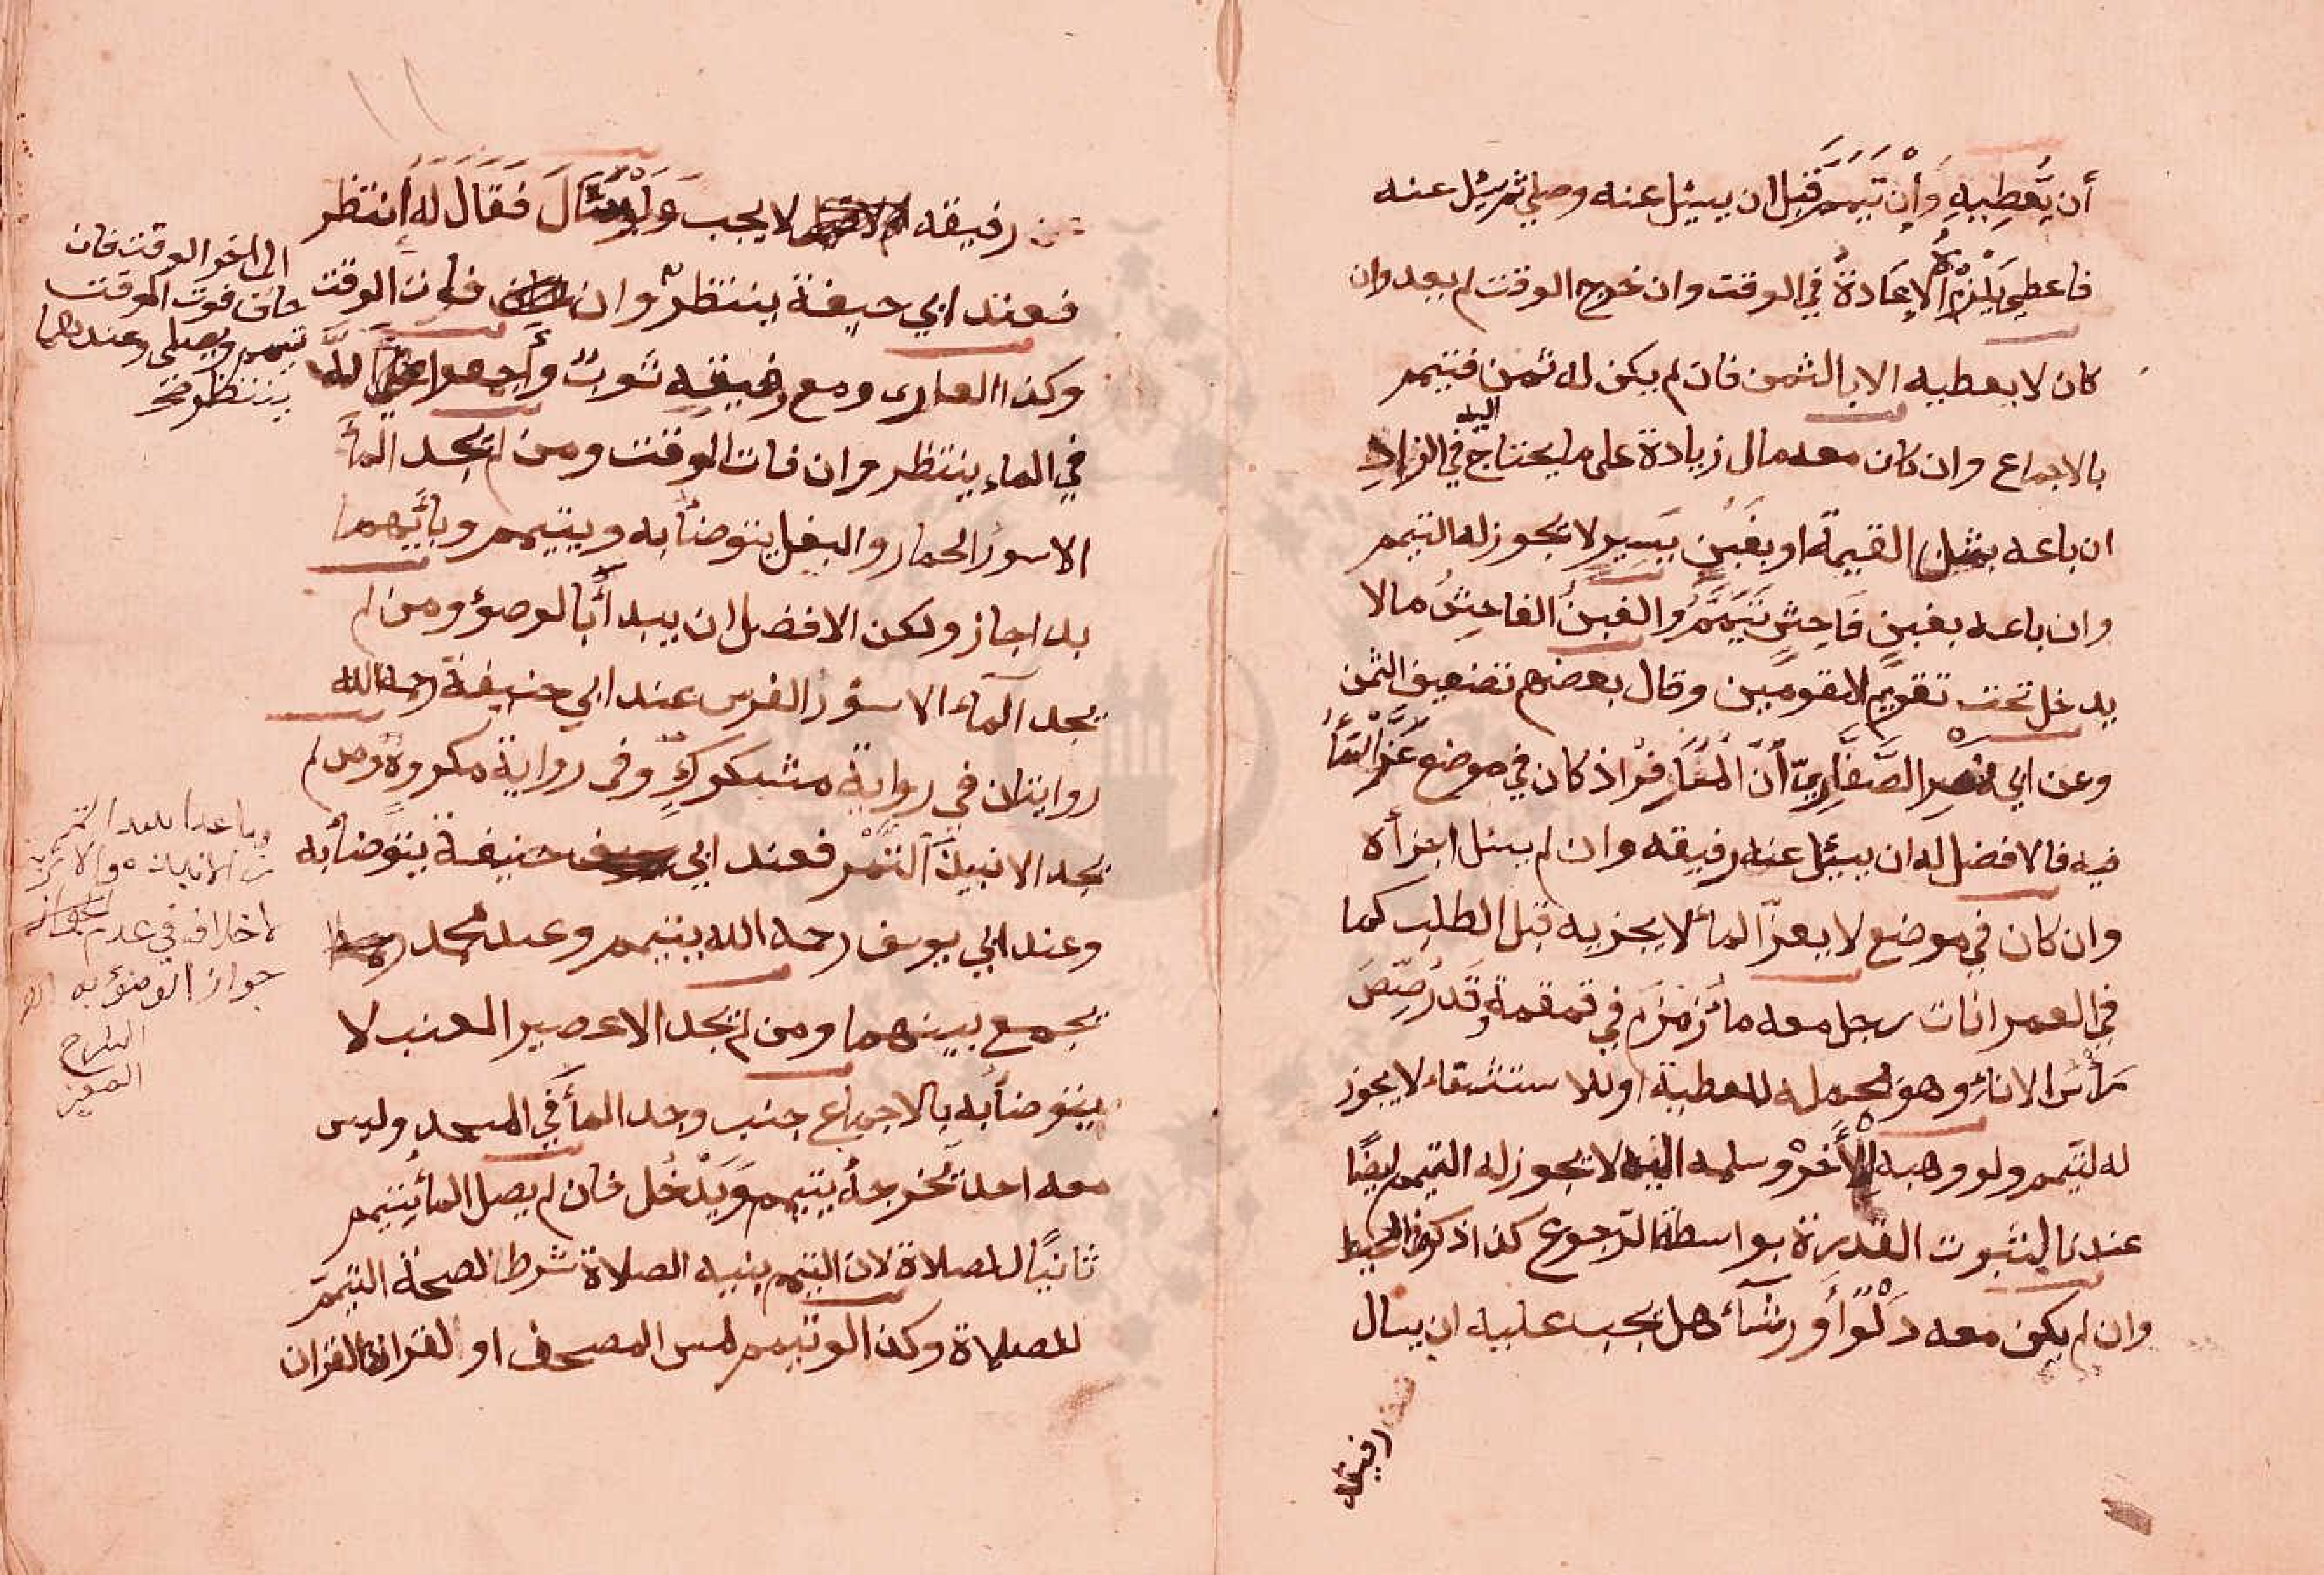 أن يُعطيه وأن تيمم قبل ان يسئل عنه وصلي ثم سئل عنه
فاعطي يلزم الإعادة في الوقت وان خرج الوقت لم يعد وان
كان لا يعطيه الا بالثمن فان لم يكن له ثمن فتيمم
بالاجماع وان كان معه مال زيادة على ما يحتاج اليه في الزاد
ان باعه بمثل القيمة او بغبن يسير لا يجوز له التيمم
وان باعه بغبن فاحش تيمم والغبن الفاحش مالا
يدخل تحت تقويم المقومين وقال بعضهم تضعيف الثمن
وعن ابي نصر الصفاري أن المسافر اذ كان في موضع عز الماء
فيه فالافضل له ان يسئل عنه رفيقه وان لم يسئل اجزأه
وان كان في موضع لا يعز المأ لا يجزيه قبل الطلب كما
في العمرانات رجل معه مأ زمزم في قمقمة وقد رصص
رأس الاناء وهو يحمله للعطية او للاستشفاء لا يجوز
له لتيمم ولو وهبه لأخر وسلمه اليه لا يجوز له التيمم ايضًا
عندنا لثبوت القدرة بواسطة الرجوع كذا ذكر في المحيط
وان لم يكن معه دلوًا أو رشآء هل يجب عليه ان يسال
رفيقه
رفيقه لا يجب ولو سأل فقال له انتظر
فعند ابي حيفة ينتظر وان فات الوقت
الى اخر الوقت فان
خاف فوت الوقت
تيمم ويصلي وعندهما
ينتظر
وكذا العاري ومع رفيقه ثوب وأجمعوا
في الماء ينتظر وان فات الوقت ومن لم يجد المأ
الا سور الحمار والبغل يتوضأ به ويتيمم وبأيهما
بدا جاز ولكن الافضل ان يبدأ بالوضؤ ومن لم
يجد المآء الا سؤر الفرس عند ابي حنيفة رحه الله
روايتان في رواية مشكوك وفي رواية مكروه ومن لم
يجد الا نبيذ التمر فعند ابي حنيفة يتوضأ به
وعند ابي يوسف رحمه الله يتيمم وعند محمد
يجمع بينهما ومن لم يجد الا عصير العنب لا
يتوضأ به بالاجماع جنب وجد المأ في المسجد وليس
معه احد يخرجه يتيمم ويدخل فان لم يصل المأ يتيمم
ثانيًا للصلاة لان التيمم بنية الصلاة شرط لصحة التيمم
للصلاة وكذا لو تيمم لمس المصحف او لقراة القران
وما عدا
لا خلاف في عدم
جواز التوضؤ به